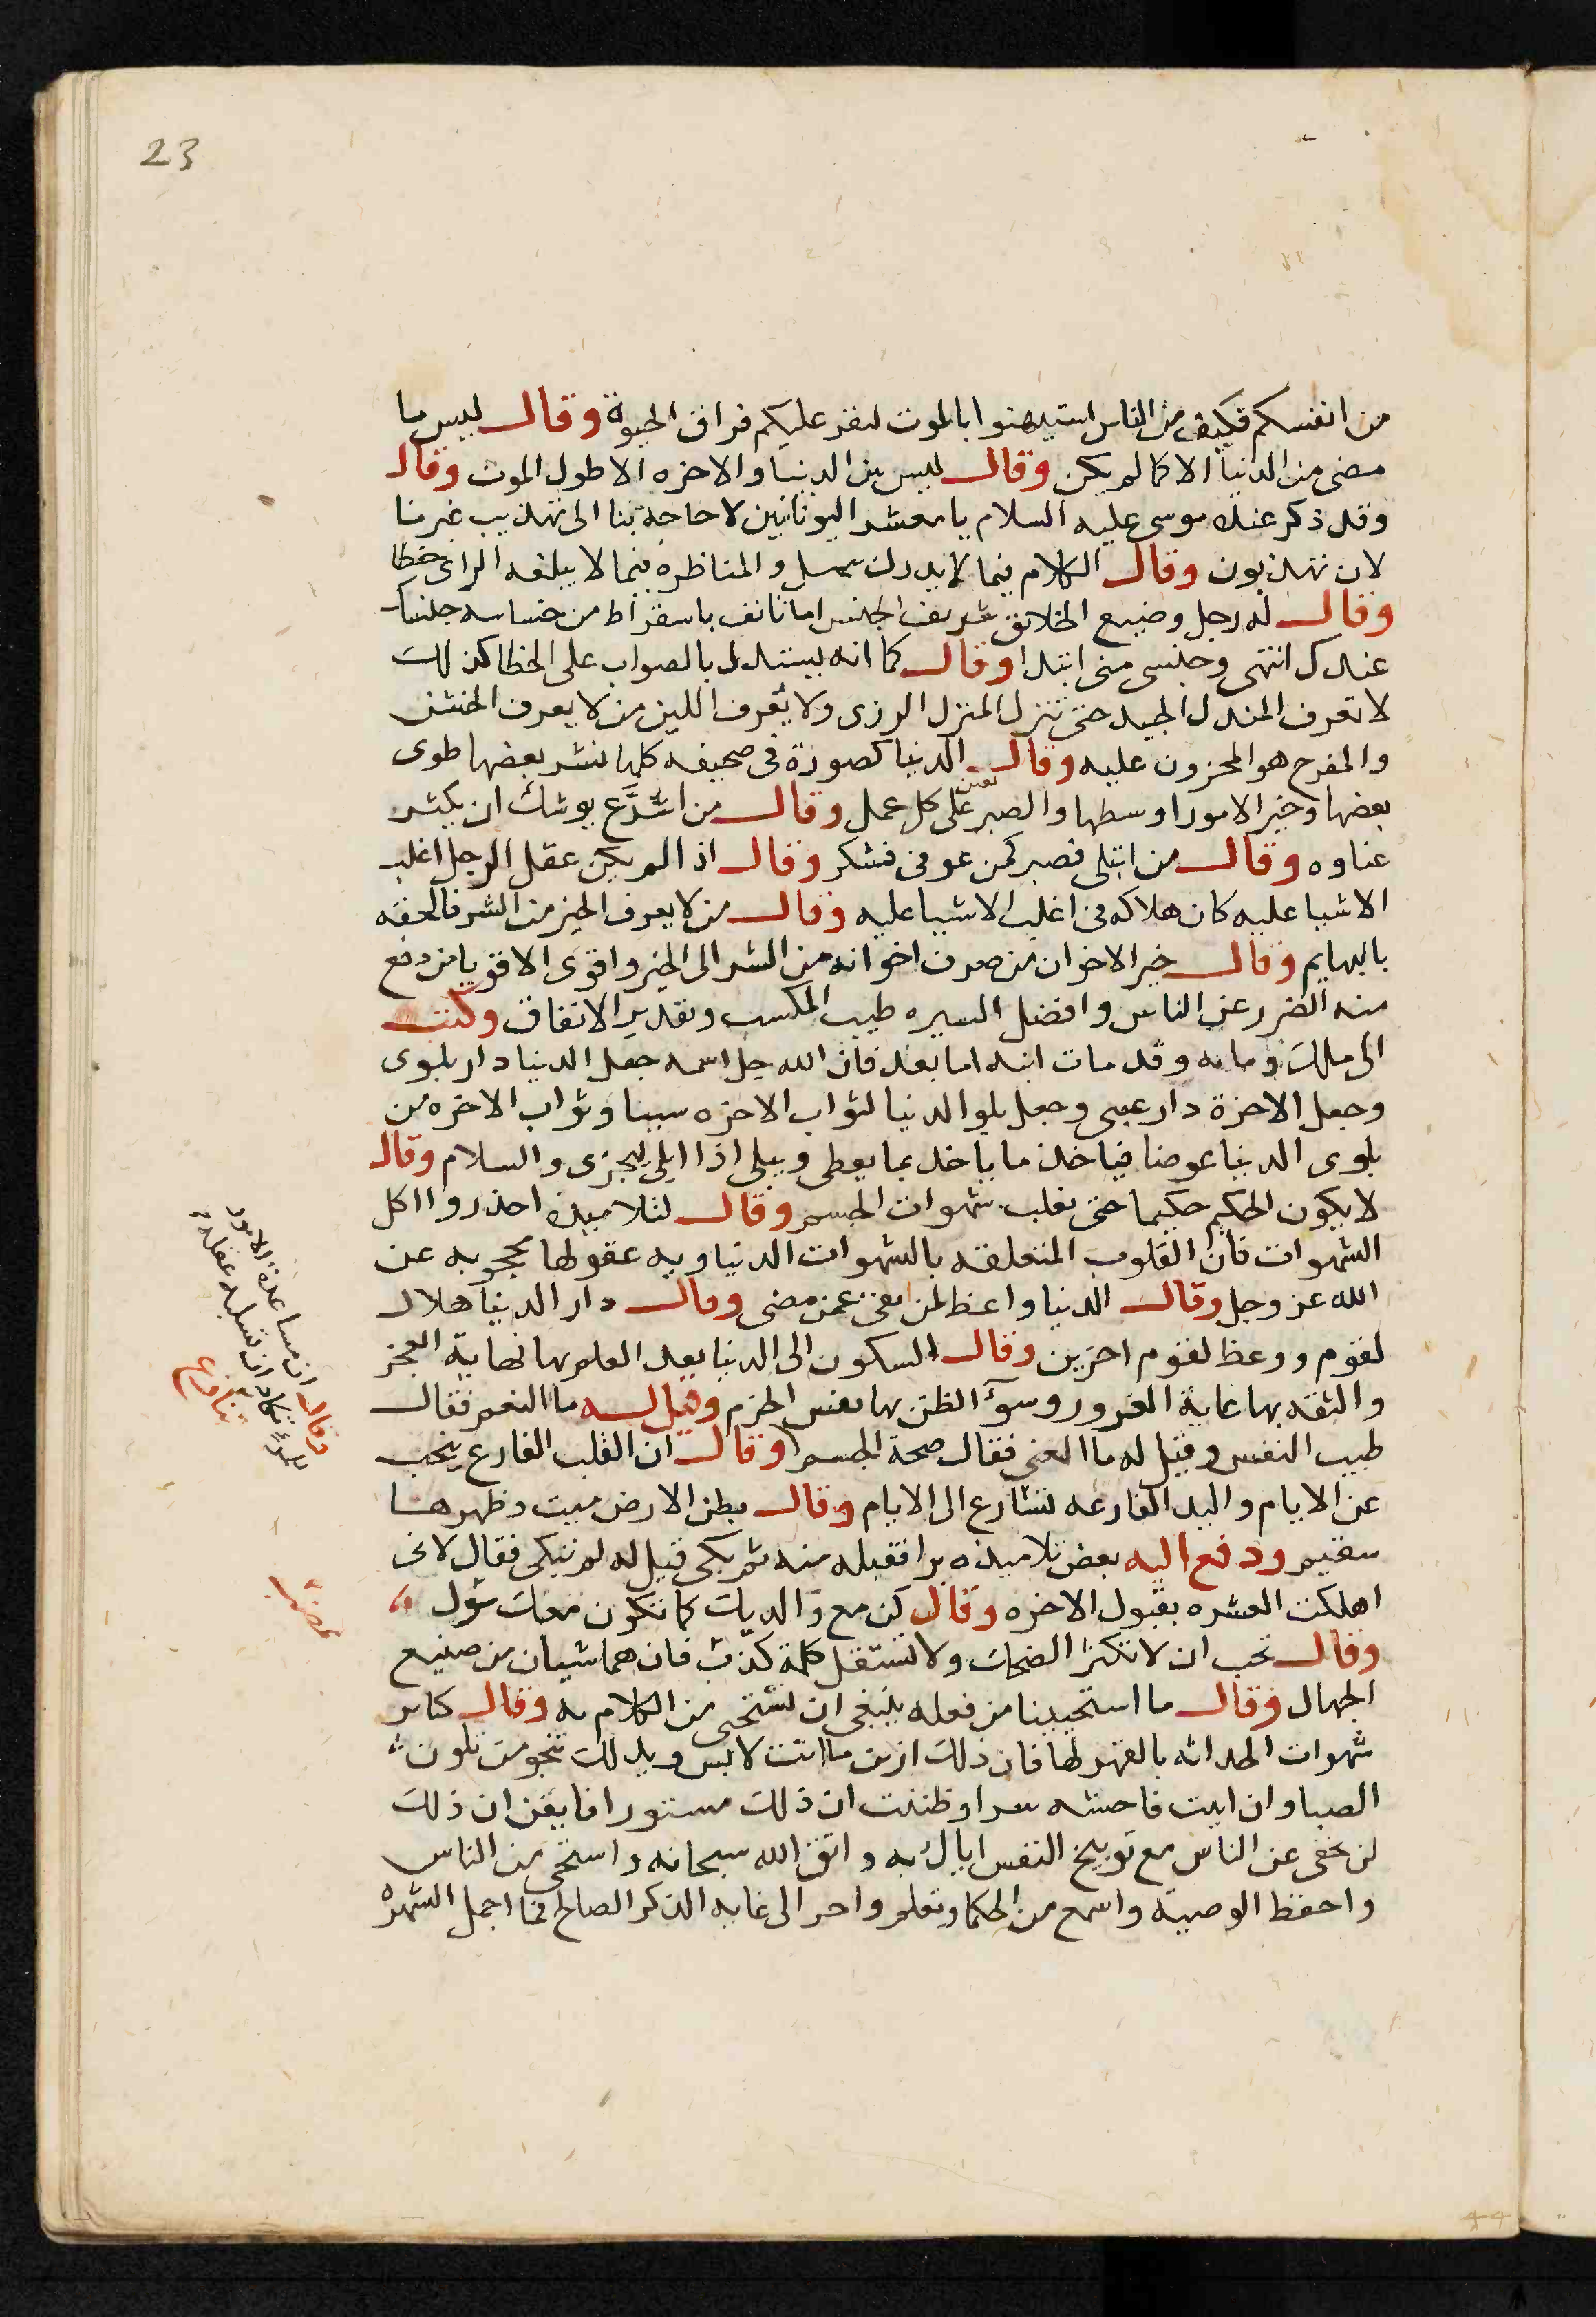 23
من انفسكم فكيف من الناس استهينوا بالموت لا يعز عليكم فراق الحيوة وقال ليس ما
مضى من الدنيا الا كما لم يكن وقال ليس بين الدنيا والاخره الا طول الموت وقال
وقد ذكر عنده موسى عليه السلام يا معشر اليونانيين لا حاجة بنا الى تهذيب غيرنا
لان تهذبون وقال الكلام فيما لا يدرك جهل والمناظره فيما لا يبلغه الراى خطا
وقال له رجل وضيع الخلائق شريف الجنس اما تانف يا سقراط من خساسه جنسك
عندك انتهى وجنسى منى ابتدا وقال كما انه يستدل بالصواب على الخطا كذلك
لا تعرف المنزل الجيد حتى تنزل المنزل الردى ولا يعرف اللين من لا يعرف الخشن
والمفرح هو المحزون عليه وقال الدنيا كصورة فى صحيفه كلما نشر بعضها طوى
بعضها وخير الامور اوسطها والصبر يعين على كل عمل وقال من اسرع يوشك ان يكثر
عثاره وقال من ابتلى فصبر كمن عوفى فشكر وقال اذا لم يكن عقل الرجل اغلب
الاشيا عليه كان هلاكه فى اغلب الاشيا عليه وقال من لا يعرف الخير من الشر فالحقه
بالبهايم وقال خير الاخوان من صرف اخوانه من الشر الى الخير واقوى الاقويا من دفع
منه الضرر عن الناس وافضل السيره طيب المكسب وتقدير الانفاق وكتب
الى ملك زمانه وقد مات ابنه اما بعد فان الله جل اسمه جعل الدنيا دار بلوى
وجعل الاخرة دار عقبى وجعل بلوا الدنيا لثواب الاخره سببا وثواب الاخره من
بلوى الدنيا عوضا فياخذ ما ياخذ بما يعطى ويبلى اذا ابلى ليجزى والسلام وقال
لا يكون الحكيم حكيما حتى يغلب شهوات الجسم وقال لتلاميذه احذروا اكل
الشهوات فان القلوب المتعلقه بالشهوات الدنياويه عقولها محجوبه عن
الله عز وجل وقال الدنيا واعظ لمن بقى عمن مضى وقال دار الدنيا هلاك
لقوم ووعظ لقوم اخرين وقال السكون الى الدنيا بعد العلم بها نهاية العجز
والثقه بها غاية الغرور وسوء الظن بها نفس الحزم وقيل له ما النعم فقال
طيب النفس وقيل له ما الغنى فقال صحة الجسم وقال ان القلب الفارغ يبحث
عن الاثام واليد الفارغه تسارع الى الاثام وقال بطن الارض ميت وظهرها
سقيم ودفع اليه بعض تلاميذه برا فقبله منه ثم بكى قيل له لم تبكى فقال لانى
اهلكت العشره بقبول الاخره وقال كن مع والديك كما تكون معك بنوك
وقال تحب ان لا تكثر الضحك ولا تستقبل كلمة كذب فان هما شيان من صنيع
الجهال وقال ما استحيينا من فعله ينبغى ان نستحى من الكلام به وقال كابر
شهوات الحداثه بالقهر لها فان ذلك ازين ما انت لابس وبذلك تنجو من تلون
الصبا وان اتيت فاحشه سرا وظننت ان ذلك مستورا فايقن ان ذلك
لن يخفى عن الناس مع توبيخ النفس اياك به واتق الله سبحانه واستحى من الناس
واحفظ الوصيه واسمع من الحكما وتعلم واجر الى غايه الذكر الصالح فما اجمل الشهره
وقال ان مساعدة الامور
للمرء تكاد ان تسلبه عقله